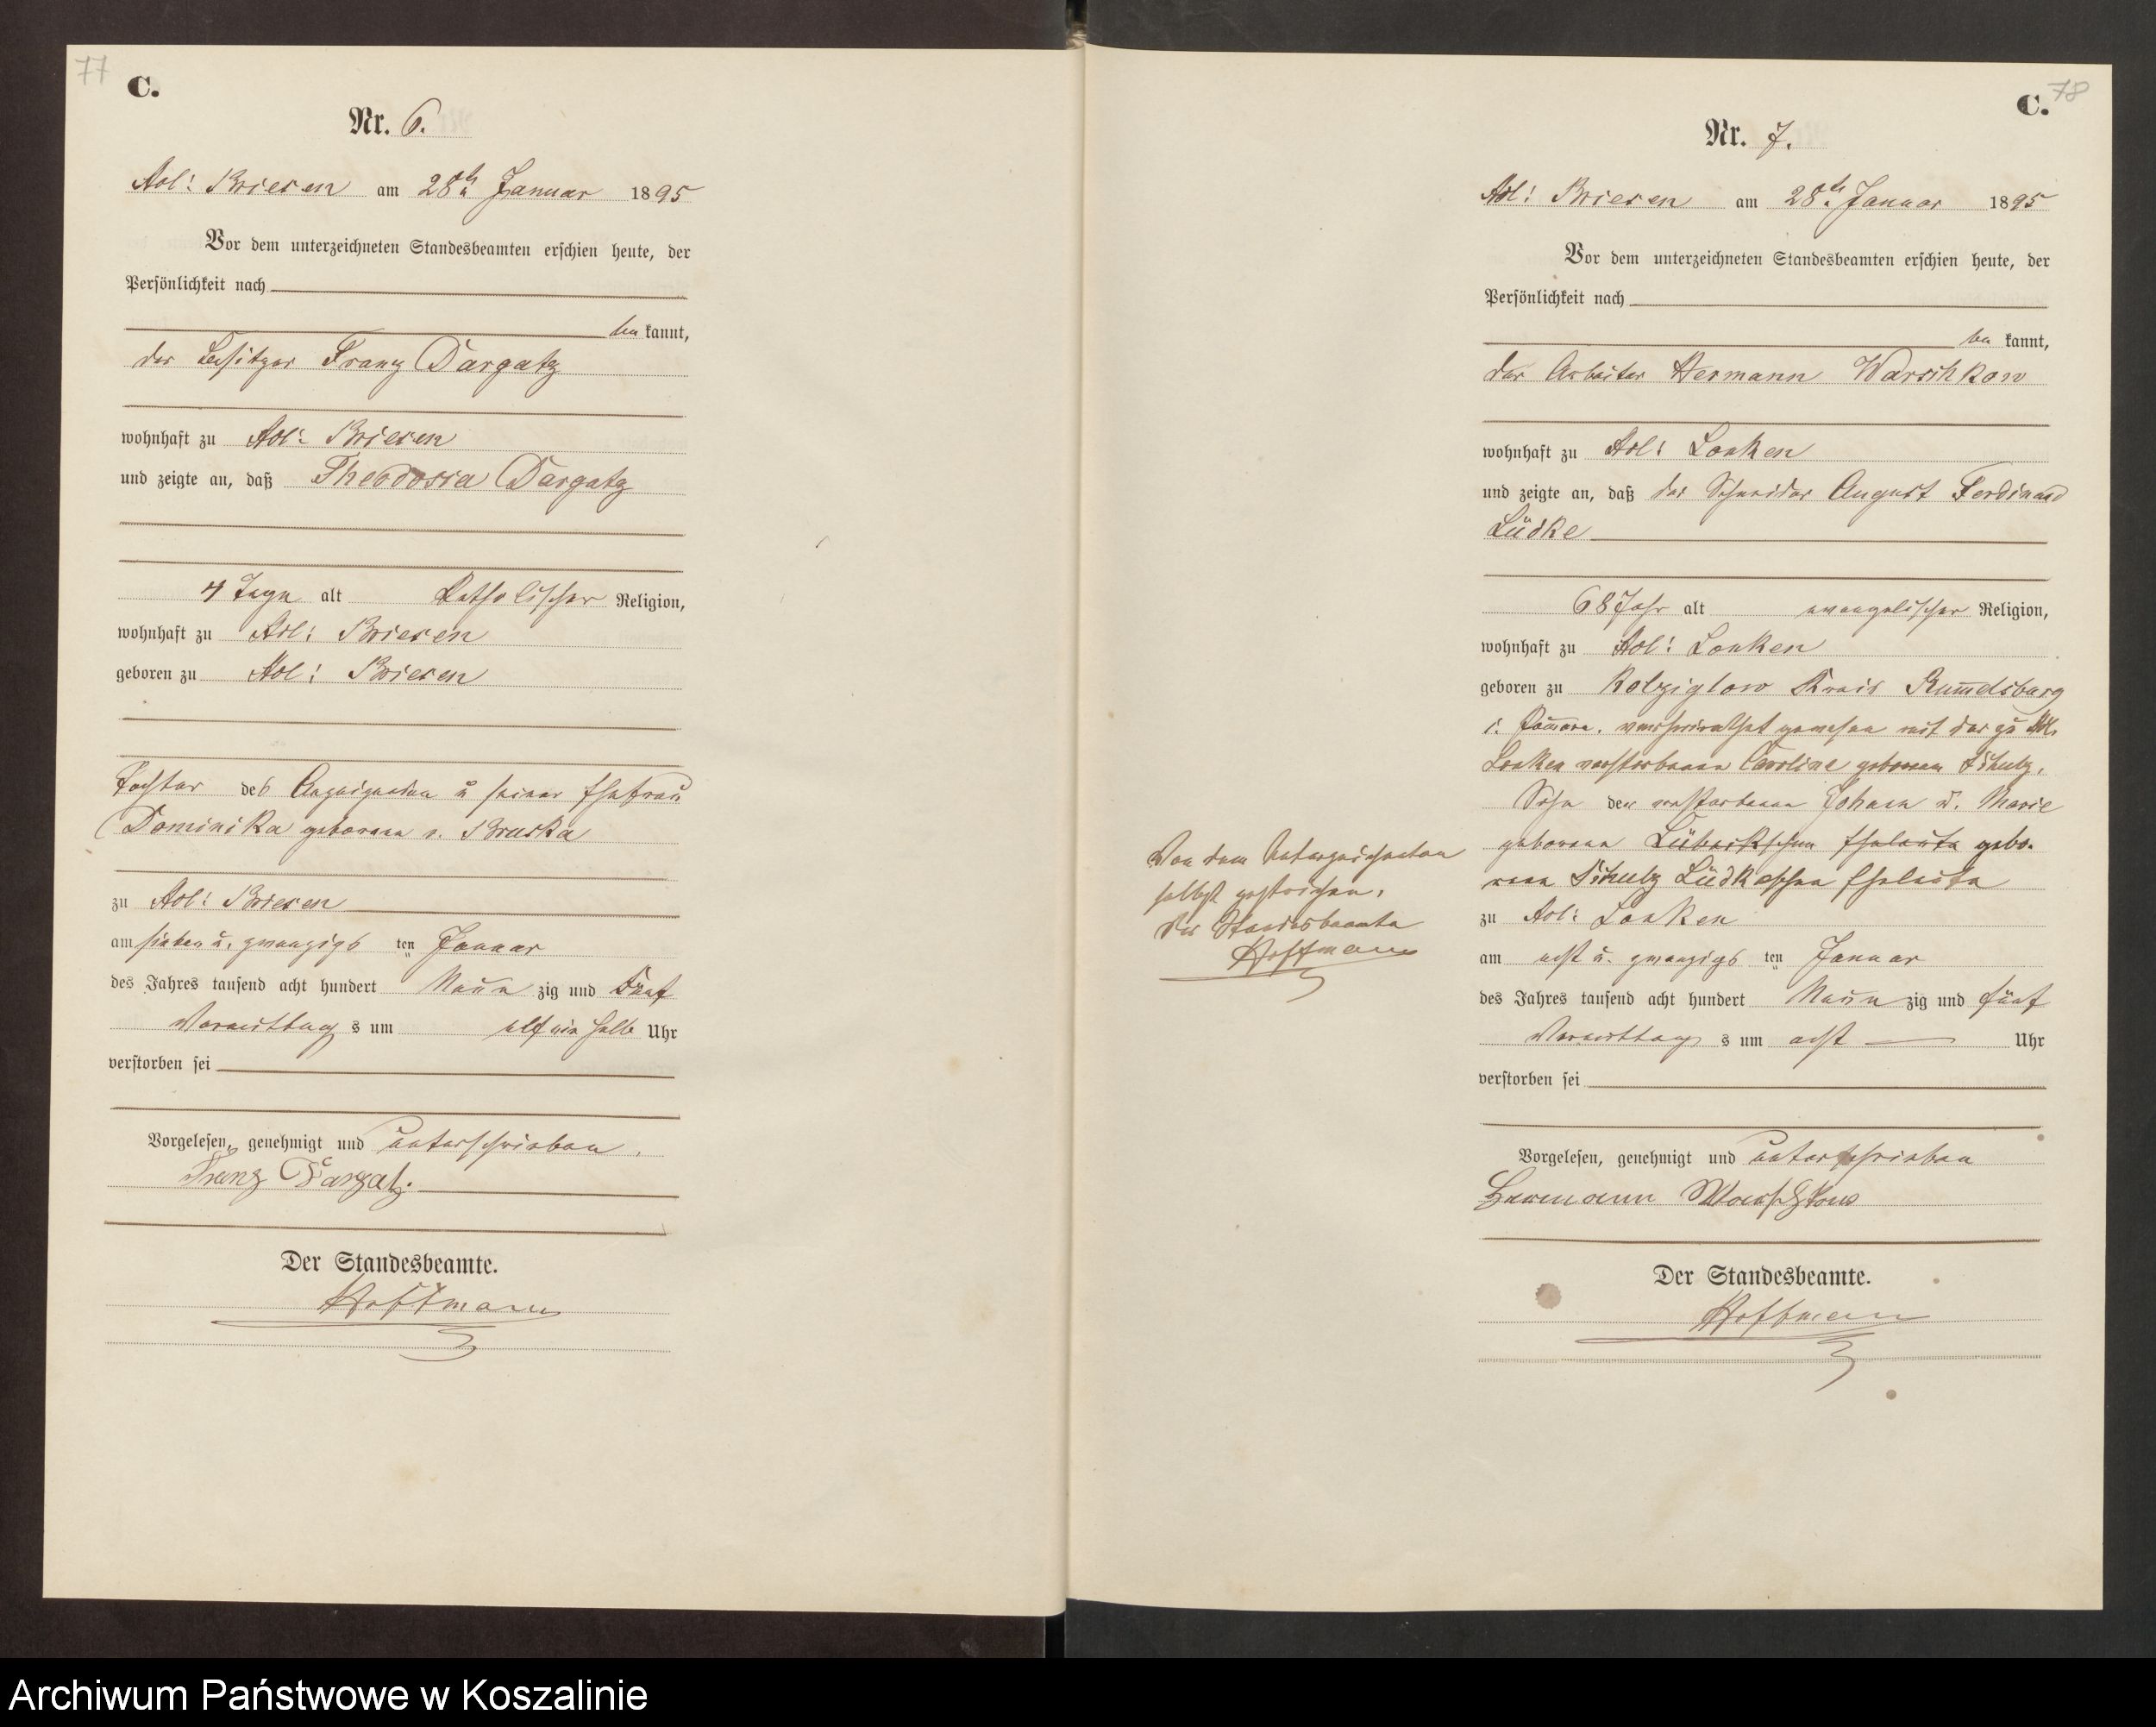 77
C.
Nr. 6.
Adl: Briesen am 28ten Januar 1895
Vor dem unterzeichneten Standesbeamten erschien heute, der
Persönlichkeit nach
be kannt,
der Besitzer Franz Dargatz
wohnhaft zu Adl: Briesen
und zeigte an, daß Theodosia Dargatz
4 Tage alt katholischer Religion,
wohnhaft zu Adl: Briesen
geboren zu Adl: Briesen
Tochter des Anzeigenden u seiner Ehefrau
Dominika geborene v. Bruska
zu Adl: Briesen
am sieben u. zwanzigs ten Januar
des Jahres tausend acht hundert Neun zig und Fünf
Vormittag s um elf ein halb Uhr
verstorben sei
Vorgelesen, genehmigt und unterschrieben.
Franz Dargatz.
Der Standesbeamte.
Hoffmann
C. 78
Nr. 7.
Adl: Briesen am 28ten Januar 1895
Vor dem unterzeichneten Standesbeamten erschien heute, der
Persönlichkeit nach
be kannt,
der Arbeiter Hermann Warschkow
wohnhaft zu Adl: Lonken
und zeigte an, daß der Schneider August Ferdinand
Lüdke
68 Jahr alt evangelischer Religion,
wohnhaft zu Adl: Lonken
geboren zu Kolziglow Kreis Rummelsburg
i. Pommern. verheirathet gewesen mit der zu Adl.
Lonken verstorbenen Caroline geborenen Schulz.
Sohn der verstorbenen Johann u. Marie
geborene Lübeckschen Eheleute gebo-
rene Schulz Lüdkeschen Eheleute
zu Adl: Lonken
am acht u. zwanzigs ten Januar
des Jahres tausend acht hundert Neun zig und fünf
Vormittag s um acht Uhr
verstorben sei
Vorgelesen, genehmigt und unterschrieben
Hermann Warschkow
Der Standesbeamte.
Hoffmann
Von dem Unterzeichneten
selbst gestrichen.
Der Standesbeamte
Hoffmann
Archiwum Państwowe w Koszalinie